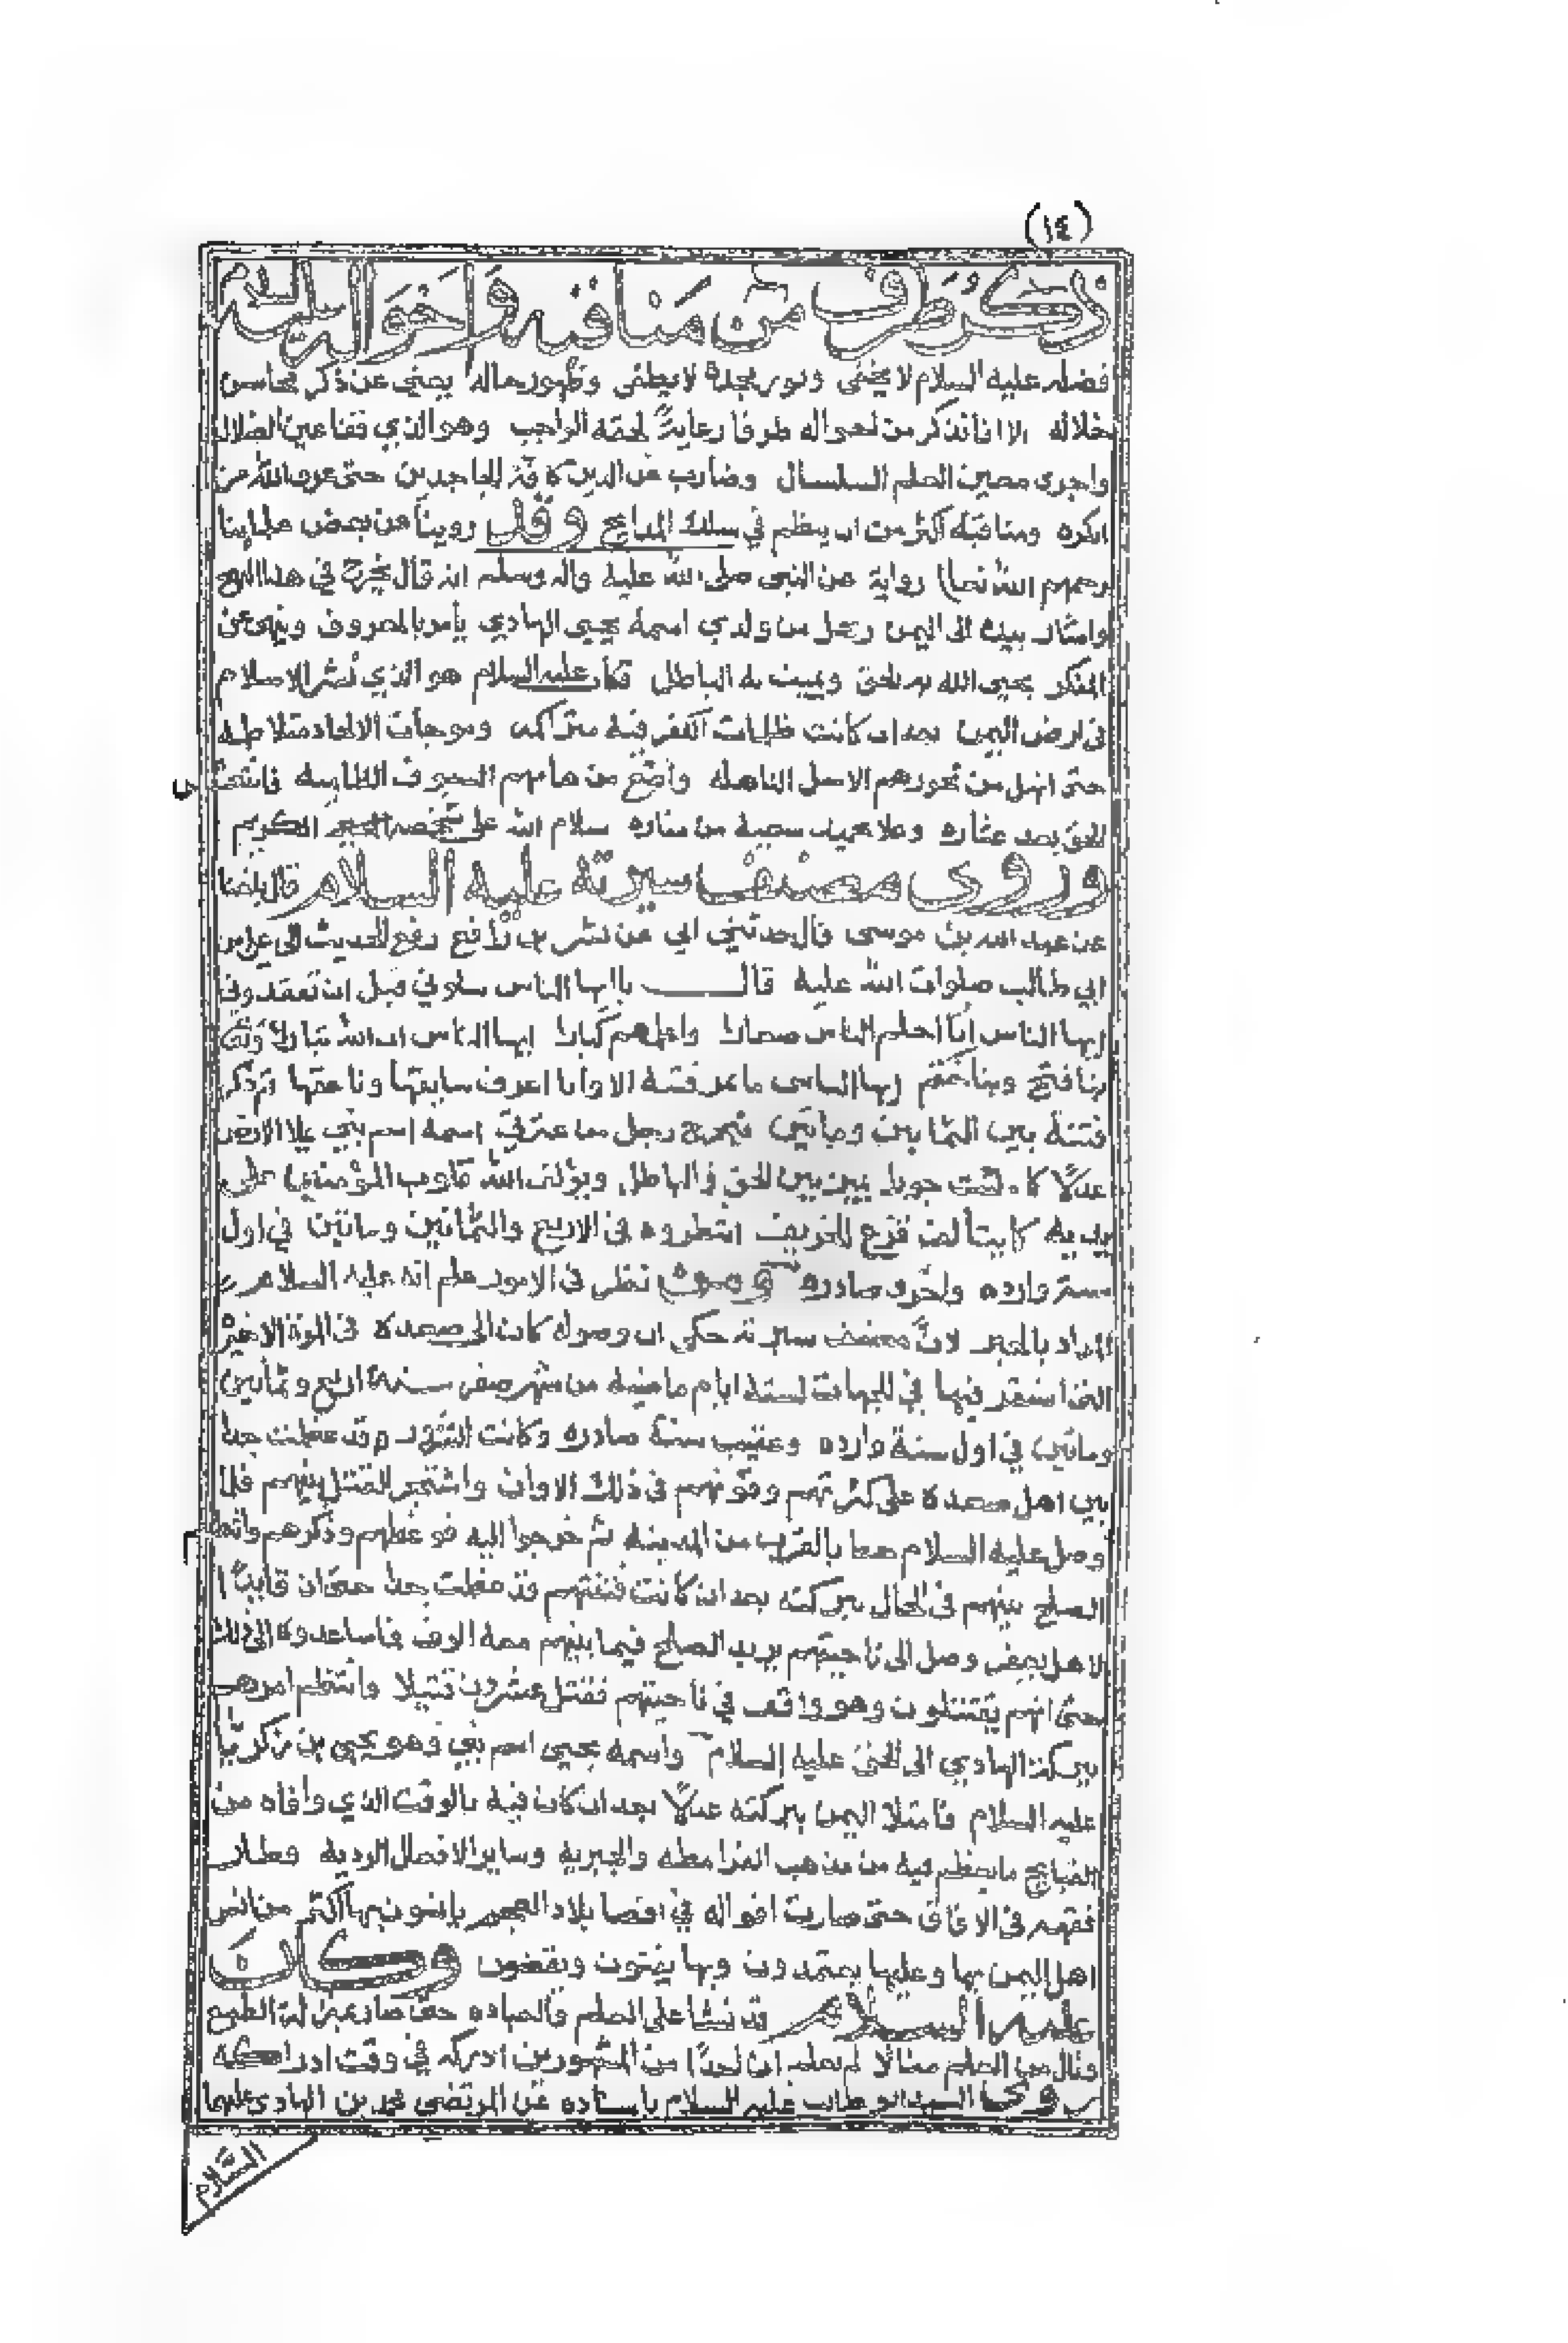 (١٤)
ذكر طرف من مناقبه واحواله عليه
فضله عليه السلام لا يخفى ونور مجده لا يطفى وظهور حاله يغني عن ذكر محاسن
خلاله الا انا نذكر من احواله طرفا رعايةً لحقه الواجب وهو الذي فقا عين الضلال
واجرى معين العلم السلسال وضارب عن الدين كافة الجاحدين حتى عرف الله من
انكره ومناقبه اكثر من ان ينظم في سلك المدايح وقد روينا عن بعض علماينا
رحمهم الله تعا) رواية عن النبي صلى الله عليه واله وسلم انه قال يخرج في هذا النهج
واشار بيده الى اليمن رجل من ولدي اسمه يحيى الهادي يأمر بالمعروف وينهى عن
المنكر يحيي الله به الحق ويميت به الباطل فكان عليه السلام هو الذي نشر الاسلام
في ارض اليمن بعد ان كانت ظلمات الكفر فيه متراكمه وموجات الالحاد متلاطمه
حتى انهل من نحورهم الاسل الناهله وانقع من هامهم السيوف الظاميه فانتعش
الحق بعد عثاره وعلا سعيه من مناره سلام الله على شخصه الكريم
وروى مصنف سيرته عليه السلام قال بلغنا
عن عبد الله بن موسى قال حدثني ابي عن بشر بن رافع رفع الحديث الى علي بن
ابي طالب صلوات الله عليه قال ياايها الناس سلوني قبل ان تفقدوني
ايها الناس انا احلم الناس صغارا واعلمهم كبارا ايها الناس ان الله تبارك وتعالى
بنا فتح وبنا ختم ايها الناس ما تمر فتنة الا وانا اعرف سايقها وناعقها ثم ذكر
فتنة بين الثمانين وماتين فيخرج رجل من عترتي اسمه اسم نبي يملا الارض
عدلاً كما ملئت جورا يميز بين الحق والباطل ويؤلف الله قلوب المؤمنين على
يديه كما يتألف قزع الخريف انتظروه في الاربع والثمانين وماتين في اول
سنة وارده واخرى صادره ومن نظر في الامور علم انه عليه السلام
المراد بالخبر لانً مصنف سيرته حكى ان وصوله كان الى صعدة في المرة الاخيره
التي استقر فيها في الجهات لستة ايام ماضية من شهر صفر سنة اربع وثمانين
وماتين في اول سنة وارده وعقيب سنة صادره وكانت الشرور قد عظمت جدا
بين اهل صعدة على كثرتهم وقوتهم في ذلك الاوان واشتجر القتل بينهم فلما
وصل عليه السلام معا بالقرب من المدينه ثم خرجوا اليه فوعظهم وذكرهم وانعقد
الصلح بينهم في الحال ببركته بعد ان كانت فتنتهم قد عظمت جدا حتى ان قايداً
لال يعفر وصل الى ناحيتهم يريد الصلح فيما بينهم معه الوف فاساعدوه الى ذلك
حتى انهم يقتتلون وهو واقف في ناحيتهم فقتل عشرون قتيلا وانتظم امرهم
ببركة الهادي الى الحق عليه السلام واسمه يحيى اسم نبي وهو يحيى بن زكريا
عليه السلام فامتلا اليمن ببركته عدلاً بعد ان كان فيه بالوقت الذي وافاه من
القبايح ما يعظم فيه من مذهب القرامطه والجبرية وساير الافعال الرديه وطار
فقهه في الافاق حتى صارت اقواله في اقصا بلاد العجم يانسون بها اكثر من انس
اهل اليمن بها وعليها يعتمدون وبها يفتون ويقضون وكان
عليه السلام قد نشا على العلم والعباده حتى صار بمنزلة الطبع
ونال من العلم منالا لم نعلم ان احدًا من المشهورين ادركه في وقت ادراكه
روى السيد ابو طالب عليه السلام باسناده عن المرتضى محمد بن الهادي عليهما
السّلام